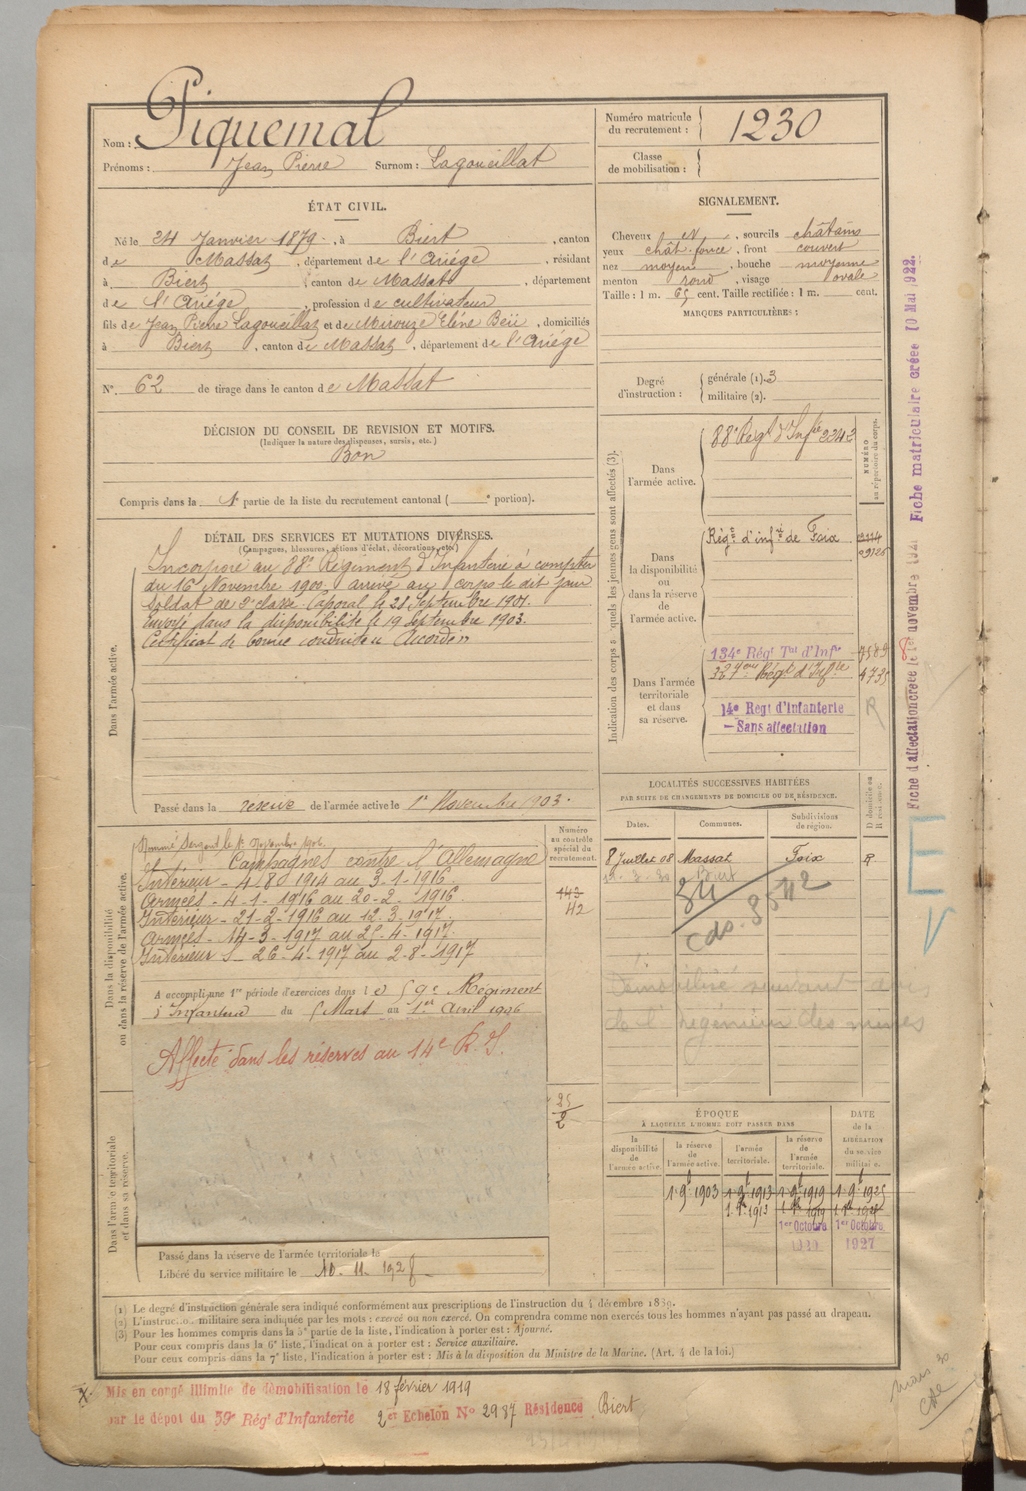 Nom : Piquemal
Prénoms : Jean Pierre Surnom : Lagoueillat
Numéro matricule du recrutement : 1230
Classe de mobilisation :
ÉTAT CIVIL.
Né le 24 Janvier 1879, à Biert, canton
de Massat, département de l'Ariège, résidant
à Biert, canton de Massat, département
de l'Ariège, profession de cultivateur
fils de Jean Pierre Lagoueillat et de Mirouze Eléne Beü, domiciliés
à Biert, canton de Massat, département de l'Ariége
N° 62 de tirage dans le canton de Massat
SIGNALEMENT.
Cheveux et, sourcils châtains
yeux chât. foncé, front couvert
nez moyen, bouche moyenne
menton rond, visage ovale
Taille : 1 m. 65 cent. Taille rectifiée : 1 m. cent.
MARQUES PARTICULIÈRES :
Degré d'instruction : générale (1). 3
militaire (2).
DÉCISION DU CONSEIL DE REVISION ET MOTIFS.
(Indiquer la nature des dispenses, sursis, etc.)
Bon
Compris dans la 1e partie de la liste du recrutement cantonal ( e portion).
DÉTAIL DES SERVICES ET MUTATIONS DIVERSES.
(Campagnes, blessures, actions d'éclat, décorations, etc.)
Dans l'armée active.
Incorporé au 88e Régiment d'Infanterie à compter
du 16 Novembre 1900. arrivé au corps le dit jour
Soldat de 2e classe. Caporal le 21 Septembre 1901.
Envoyé dans la disponibilité le 19 Septembre 1903.
Certificat de bonne conduite Accordé
Passé dans la réserve de l'armée active le 1er Novembre 1903.
Indication des corps auxquels les jeunes gens sont affectés (3).
NUMÉRO au répertoire du corps.
Dans l'armée active.
88e Régt d'Infie 2242
Dans la disponibilité ou dans la réserve de l'armée active.
Régt d'infie de Foix
Dans l'armée territoriale et dans sa réserve.
134e Régt Tal d'Infie
327eme Régt d'Infie 4735
14e Régt d'Infanterie R
— Sans affectation
Dans la disponibilité ou dans la réserve de l'armée active.
Nommé Sergent le
Campagnes contre l'Allemagne
Intérieur - 4-8-1914 au 3-1-1916
Armées - 4-1-1916 au 20-2-1916
Intérieur - 21-2-1916 au 12-3-1917
Armées - 14-3-1917 au 25-4-1917
Intérieur - 26-4-1917 au 2-8-1917
A accompli une 1re période d'exercices dans le 59e Régiment
d'Infanterie du 5 Mars au 1er Avril 1906
Affecté dans les réserves au 14e R.I.
Numéro au contrôle spécial du recrutement.
143
42
25
2
LOCALITÉS SUCCESSIVES HABITÉES
PAR SUITE DE CHANGEMENTS DE DOMICILE OU DE RÉSIDENCE.
Dates. Communes. Subdivisions de région. D domicile ou R résidence.
8 Juillet 08 Massat Foix R
Biert
84
cds. 8542
Démobilisé suivant avis
de l'ingénieur des mines
ÉPOQUE
À LAQUELLE L'HOMME DOIT PASSER DANS
la disponibilité de l'armée active.
la réserve de l'armée active.
l'armée territoriale.
la réserve de l'armée territoriale.
DATE de la LIBÉRATION du service militaire.
1 9t 1903 1 9t 1913 1 9t 1919 1 9t 1925
1er Octobre 1er Octobre
1927
Dans l'armée territoriale et dans sa réserve.
Passé dans la réserve de l'armée territoriale le
Libéré du service militaire le 10-11-1928
(1) Le degré d'instruction générale sera indiqué conformément aux prescriptions de l'instruction du 4 décembre 1889.
(2) L'instruction militaire sera indiquée par les mots : exercé ou non exercé. On comprendra comme non exercés tous les hommes n'ayant pas passé au drapeau.
(3) Pour les hommes compris dans la 5e partie de la liste, l'indication à porter est : Ajourné.
Pour ceux compris dans la 6e liste, l'indication à porter est : Service auxiliaire.
Pour ceux compris dans la 7e liste, l'indication à porter est : Mis à la disposition du Ministre de la Marine. (Art. 4 de la loi.)
Mis en congé illimité de démobilisation le 18 février 1919
par le dépôt du 59e Régt d'Infanterie 2er Echelon N° 2987 Résidence Biert
Fiche d'affectation créée le 1er novembre 1921 Fiche matriculaire créée 10 Mai 1922.
Mars 30